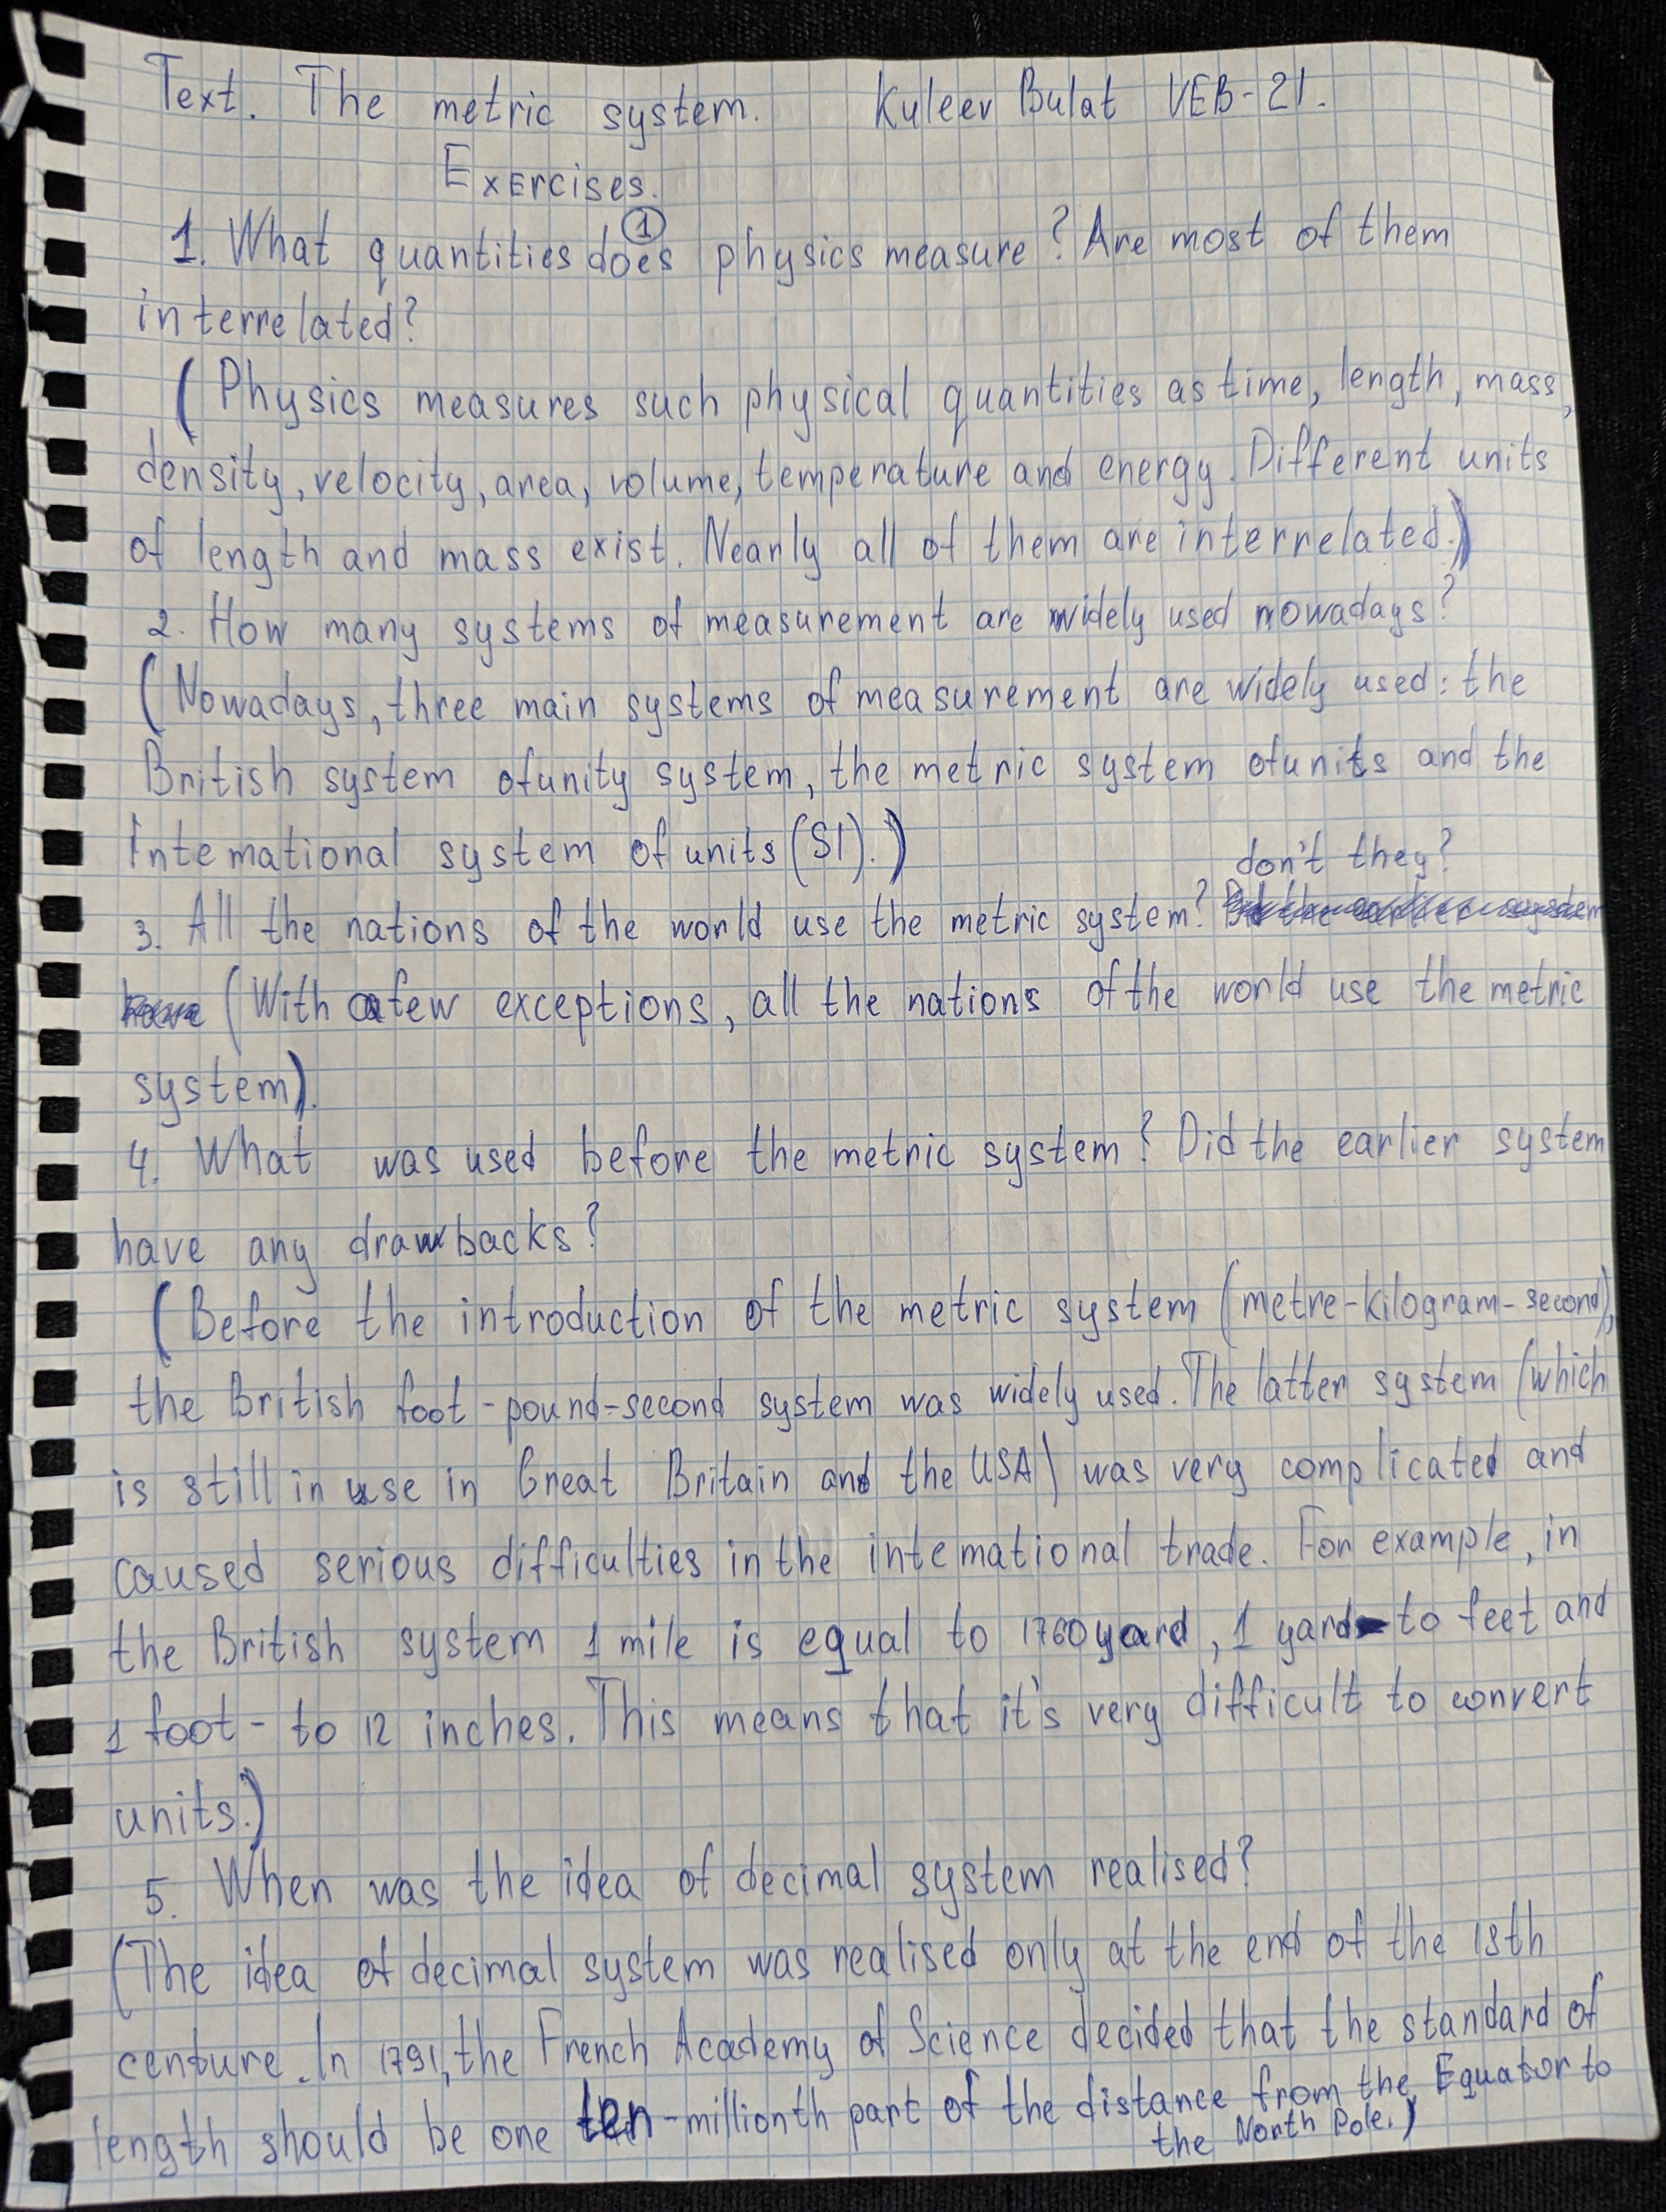 Text. The metric system. Kuleev Bulat VEB-21.
Exercises.
①
1. What quantities does physics measure? Are most of them
interrelated?
(Physics measures such physical quantities as time, length, mass,
density, velocity, area, volume, temperature and energy. Different units
of length and mass exist. Nearly all of them are interrelated.)
2. How many systems of measurement are widely used nowadays?
(Nowadays, three main systems of measurement are widely used: the
British system ofunity system, the metric system ofunits and the
Intemational system of units (SI).)
don't they?
3. All the nations of the world use the metric system?
(With a few exceptions, all the nations of the world use the metric
system).
4. What was used before the metric system? Did the earlier system
have any drawbacks?
(Before the introduction of the metric system (metre-kilogram-second),
the British foot-pound-second system was widely used. The latter system (which
is still in use in Great Britain and the USA) was very complicated and
caused serious difficulties in the intemational trade. For example, in
the British system 1 mile is equal to 1760 yard, 1 yard - to feet and
1 foot - to 12 inches. This means that it's very difficult to convert
units.)
5. When was the idea of decimal system realised?
(The idea of decimal system was realised only at the end of the 18th
centure. In 1791, the French Academy of Science decided that the standard of
length should be one ten-millionth part of the distance from the Equator to
the North Pole.)